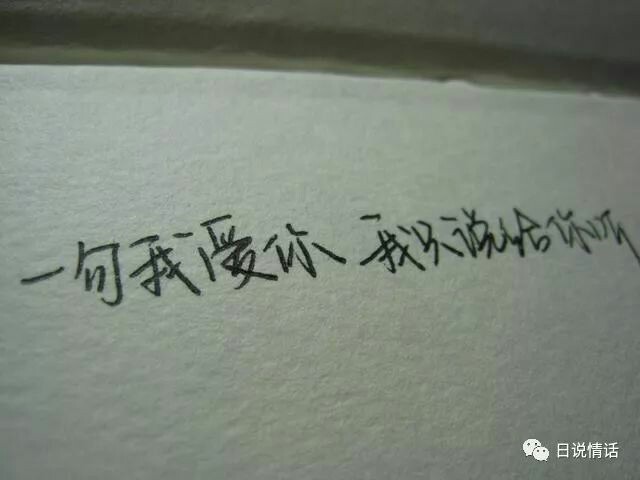 一句我爱你 我只说给你听
日说情话